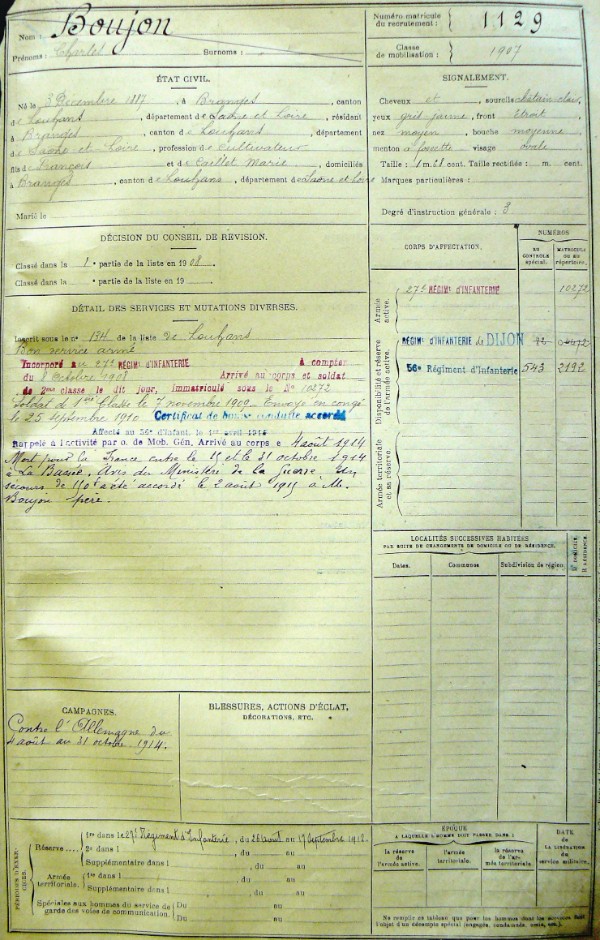 Nom : Boujon
Prénoms : Charlet Surnoms :
Numéro matricule du recrutement : 1129
Classe de mobilisation : 1907
ÉTAT CIVIL.
Né le 3 Décembre 1887, à Branges, canton
de Louhans, département de Saône et Loire, résident
à Branges, canton de Louhans, département
de Saône et Loire, profession de Cultivateur
fils de François et de Caillet Marie, domiciliés
à Branges, canton de Louhans, département de Saône et Loire
Marié le
SIGNALEMENT.
Cheveux et sourcils châtain clair,
yeux gris jaune, front Etroit,
nez moyen, bouche moyenne
menton à fossette visage ovale
Taille : 1 m. cent. Taille rectifiée : m. cent.
Marques particulières :
Degré d'instruction générale : 3
DÉCISION DU CONSEIL DE REVISION.
Classé dans la 1e partie de la liste en 1908
Classé dans la e partie de la liste en 19
DÉTAIL DES SERVICES ET MUTATIONS DIVERSES.
Inscrit sous le n° 134 de la liste de Louhans
Bon service armé
Incorporé au 27e RÉGIMt D'INFANTERIE à compter
du 8 Octobre 1908 Arrivé au corps et soldat
de 2me classe le dit jour, immatriculé sous le N° 10272
Soldat de 1ère Classe le 7 novembre 1909. Envoyé en congé
le 25 septembre 1910 Certificat de bonne conduite accordé
Affecté au 56e d'Infant. le 1er avril
Rappelé à l'activité par o. de Mob. Gén. Arrivé au corps le 4 août 1914
Mort pour la France entre le 15 et le 31 octobre 1914
à La Bassée. Avis du Ministère de la Guerre. Un
secours de 150f a été accordé le 2 août 1915 à M.
Boujon père.
CORPS D'AFFECTATION.
NUMÉROS
DU CONTROLE spécial.
MATRICULE OU DU répertoire.
Armée active.
27e RÉGIMt D'INFANTERIE 10272
Disponibilité et réserve de l'armée active.
RÉGIMt D'INFANTERIE de DIJON
56e Régiment d'Infanterie 543 2192
Armée territoriale et sa réserve.
LOCALITÉS SUCCESSIVES HABITÉES
PAR SUITE DE CHANGEMENTS DE DOMICILE OU DE RÉSIDENCE.
Dates. Communes Subdivision de région D. DOMICILE. R. RÉSIDENCE.
CAMPAGNES.
Contre l'Allemagne du
4 août au 31 octobre 1914.
BLESSURES, ACTIONS D'ÉCLAT,
DÉCORATIONS, ETC.
PÉRIODES D'EXERCICES.
Réserve
1re dans le 27e Régiment d'Infanterie, du 26 août au 17 Septembre 1912.
2e dans l , du au
Supplémentaire dans l , du au
Armée territoriale.
1re dans l , du au
Supplémentaire dans l , du au
Spéciales aux hommes du service de garde des voies de communication.
Du au
Du au
ÉPOQUE
A LAQUELLE L'HOMME DOIT PASSER DANS :
la réserve de l'armée active.
l'armée territoriale.
la réserve de l'armée territoriale.
DATE DE LA LIBÉRATION du service militaire.
Ne remplir ce tableau que pour les hommes dont les services font
l'objet d'un décompte spécial (engagés, condamnés, omis, etc.).